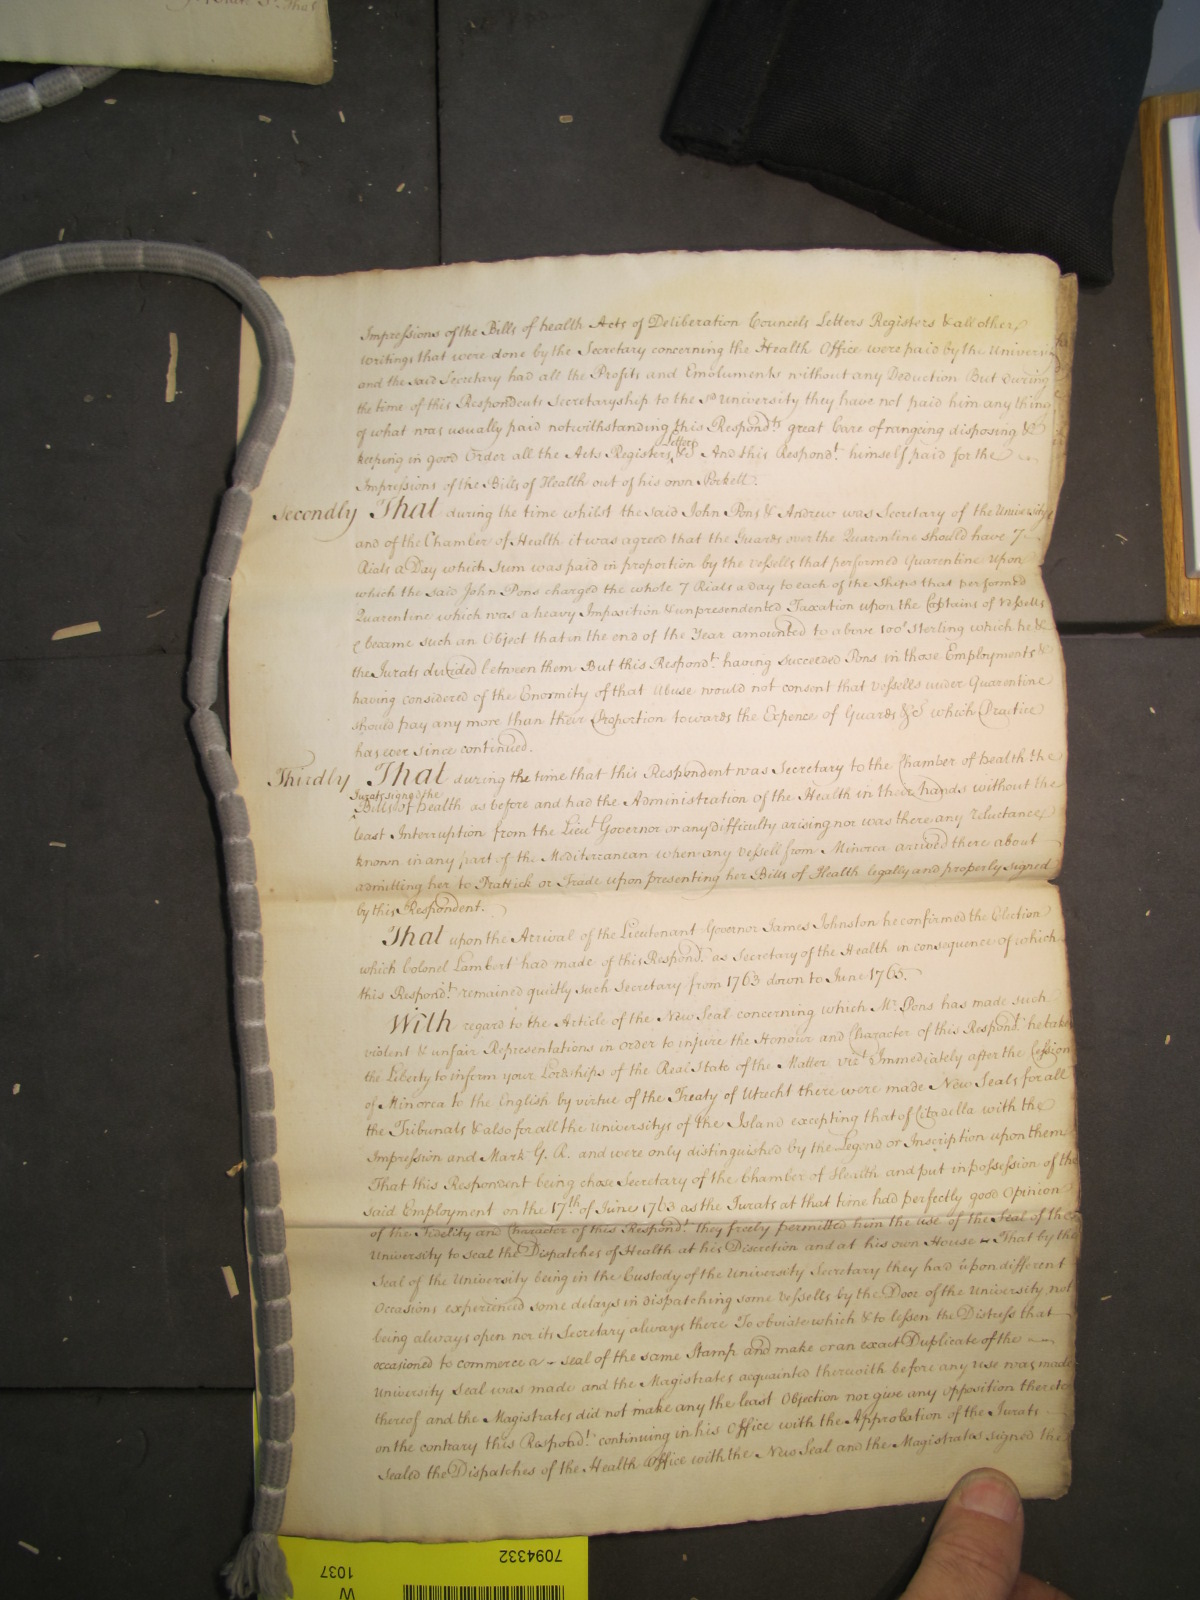 Impressions of the Bills of health Acts of Deliberation Councels Letters Registers & all other
writings that were done by the Secretary concerning the Health Office were paid by the University
and the said Secretary had all the Profits and Emoluments without any Deduction But during
the time of this Respondents Secretaryship to the sd University they have not paid him any thing
of what was usually paid notwithstanding this Respondts great Care of rangeing disposing &
Letters
keeping in good Order all the Acts Registers &c And this Respondt himself paid for the
Impressions of the Bills of Health out of his own Pockett.
Secondly That during the time whilst the said John Pons & Andrew was Secretary of the University
and of the Chamber of Health it was agreed that the Guards over the Quarentine should have 7
Rials a Day which Sum was paid in proportion by the vessells that performed Quarentine Upon
which the said John Pons charged the whole 7 Rials a day to each of the Ships that performed
Quarentine which was a heavy Imposition & unpresendented Taxation upon the Captains of Vessells
& became such an Object that in the end of the Year amounted to above 100£ Sterling which he &
the Jurats divided between them But this Respondt having succeeded Pons in those Employments &
having considered of the Enormity of that Abuse would not consent that Vessells under Quarentine
should pay any more than their Proportion towards the Expence of Guards &c which Practice
has ever since continued.
Thirdly That during the time that this Respondent was Secretary to the Chamber of health the
Jurats signed the
Bills of health as before and had the Administration of the Health in their hands without the
least Interruption from the Lieut Governor or any difficulty arising nor was there any reluctance
known in any part of the Mediterranean when any Vessell from Minorca arrived there about
admitting her to Prattick or Trade upon presenting her Bills of Health legally and properly signed
by this Respondent.
That upon the Arrival of the Lieutenant Governor James Johnston he confirmed the Election
which Colonel Lambert had made of this Respondt as Secretary of the Health in consequence of which
this Respondt remained quietly such Secretary from 1763 down to June 1765.
With regard to the Article of the New Seal concerning which Mr Pons has made such
violent & unfair Representations in order to injure the Honour and Character of this Respondt he takes
the Liberty to inform your Lordships of the Real State of the Matter vizt Immediately after the Cession
of Minorca to the English by virtue of the Treaty of Utrecht there were made New Seals for all
the Tribunals & also for all the Universitys of the Island excepting that of Citadella with the
Impression and Mark G. R. and were only distinguished by the Legend or Inscription upon them
That this Respondent being chose Secretary of the Chamber of Health and put in possession of the
said Employment on the 17th of June 1763 as the Jurats at that time had perfectly good Opinion
of the Fidelity and Character of this Respondt they freely permitted him the use of the Seal of the
University to seal the Dispatches of Health at his Discretion and at his own House - That by the
Seal of the University being in the Custody of the University Secretary they had upon different
Occasions experienced some delays in dispatching some Vessells by the Door of the University not
being always open nor its Secretary always there To obviate which & to lessen the Distress that
occasioned to commerce a - seal of the same Stamp and make or an exact Duplicate of the
University Seal was made and the Magistrates acquainted therewith before any use was made
thereof and the Magistrates did not make any the least Objection nor give any opposition thereto
on the contrary this Respondt continuing in his Office with the Approbation of the Jurats
sealed the Dispatches of the Health Office with the New Seal and the Magistrates signed the
7094332
1037
W